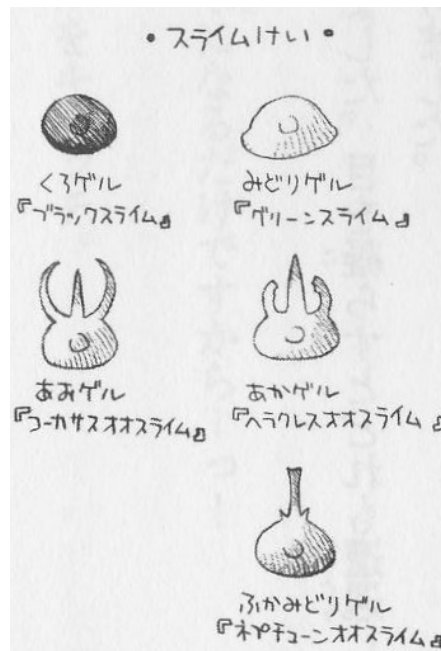 • スライムけい •
くろゲル
『ブラックスライム』
みどりゲル
『グリーンスライム』
あおゲル
『コーカサスオオスライム』
あかゲル
『ヘラクレスオオスライム』
ふかみどりゲル
『ネプチューンオオスライム』